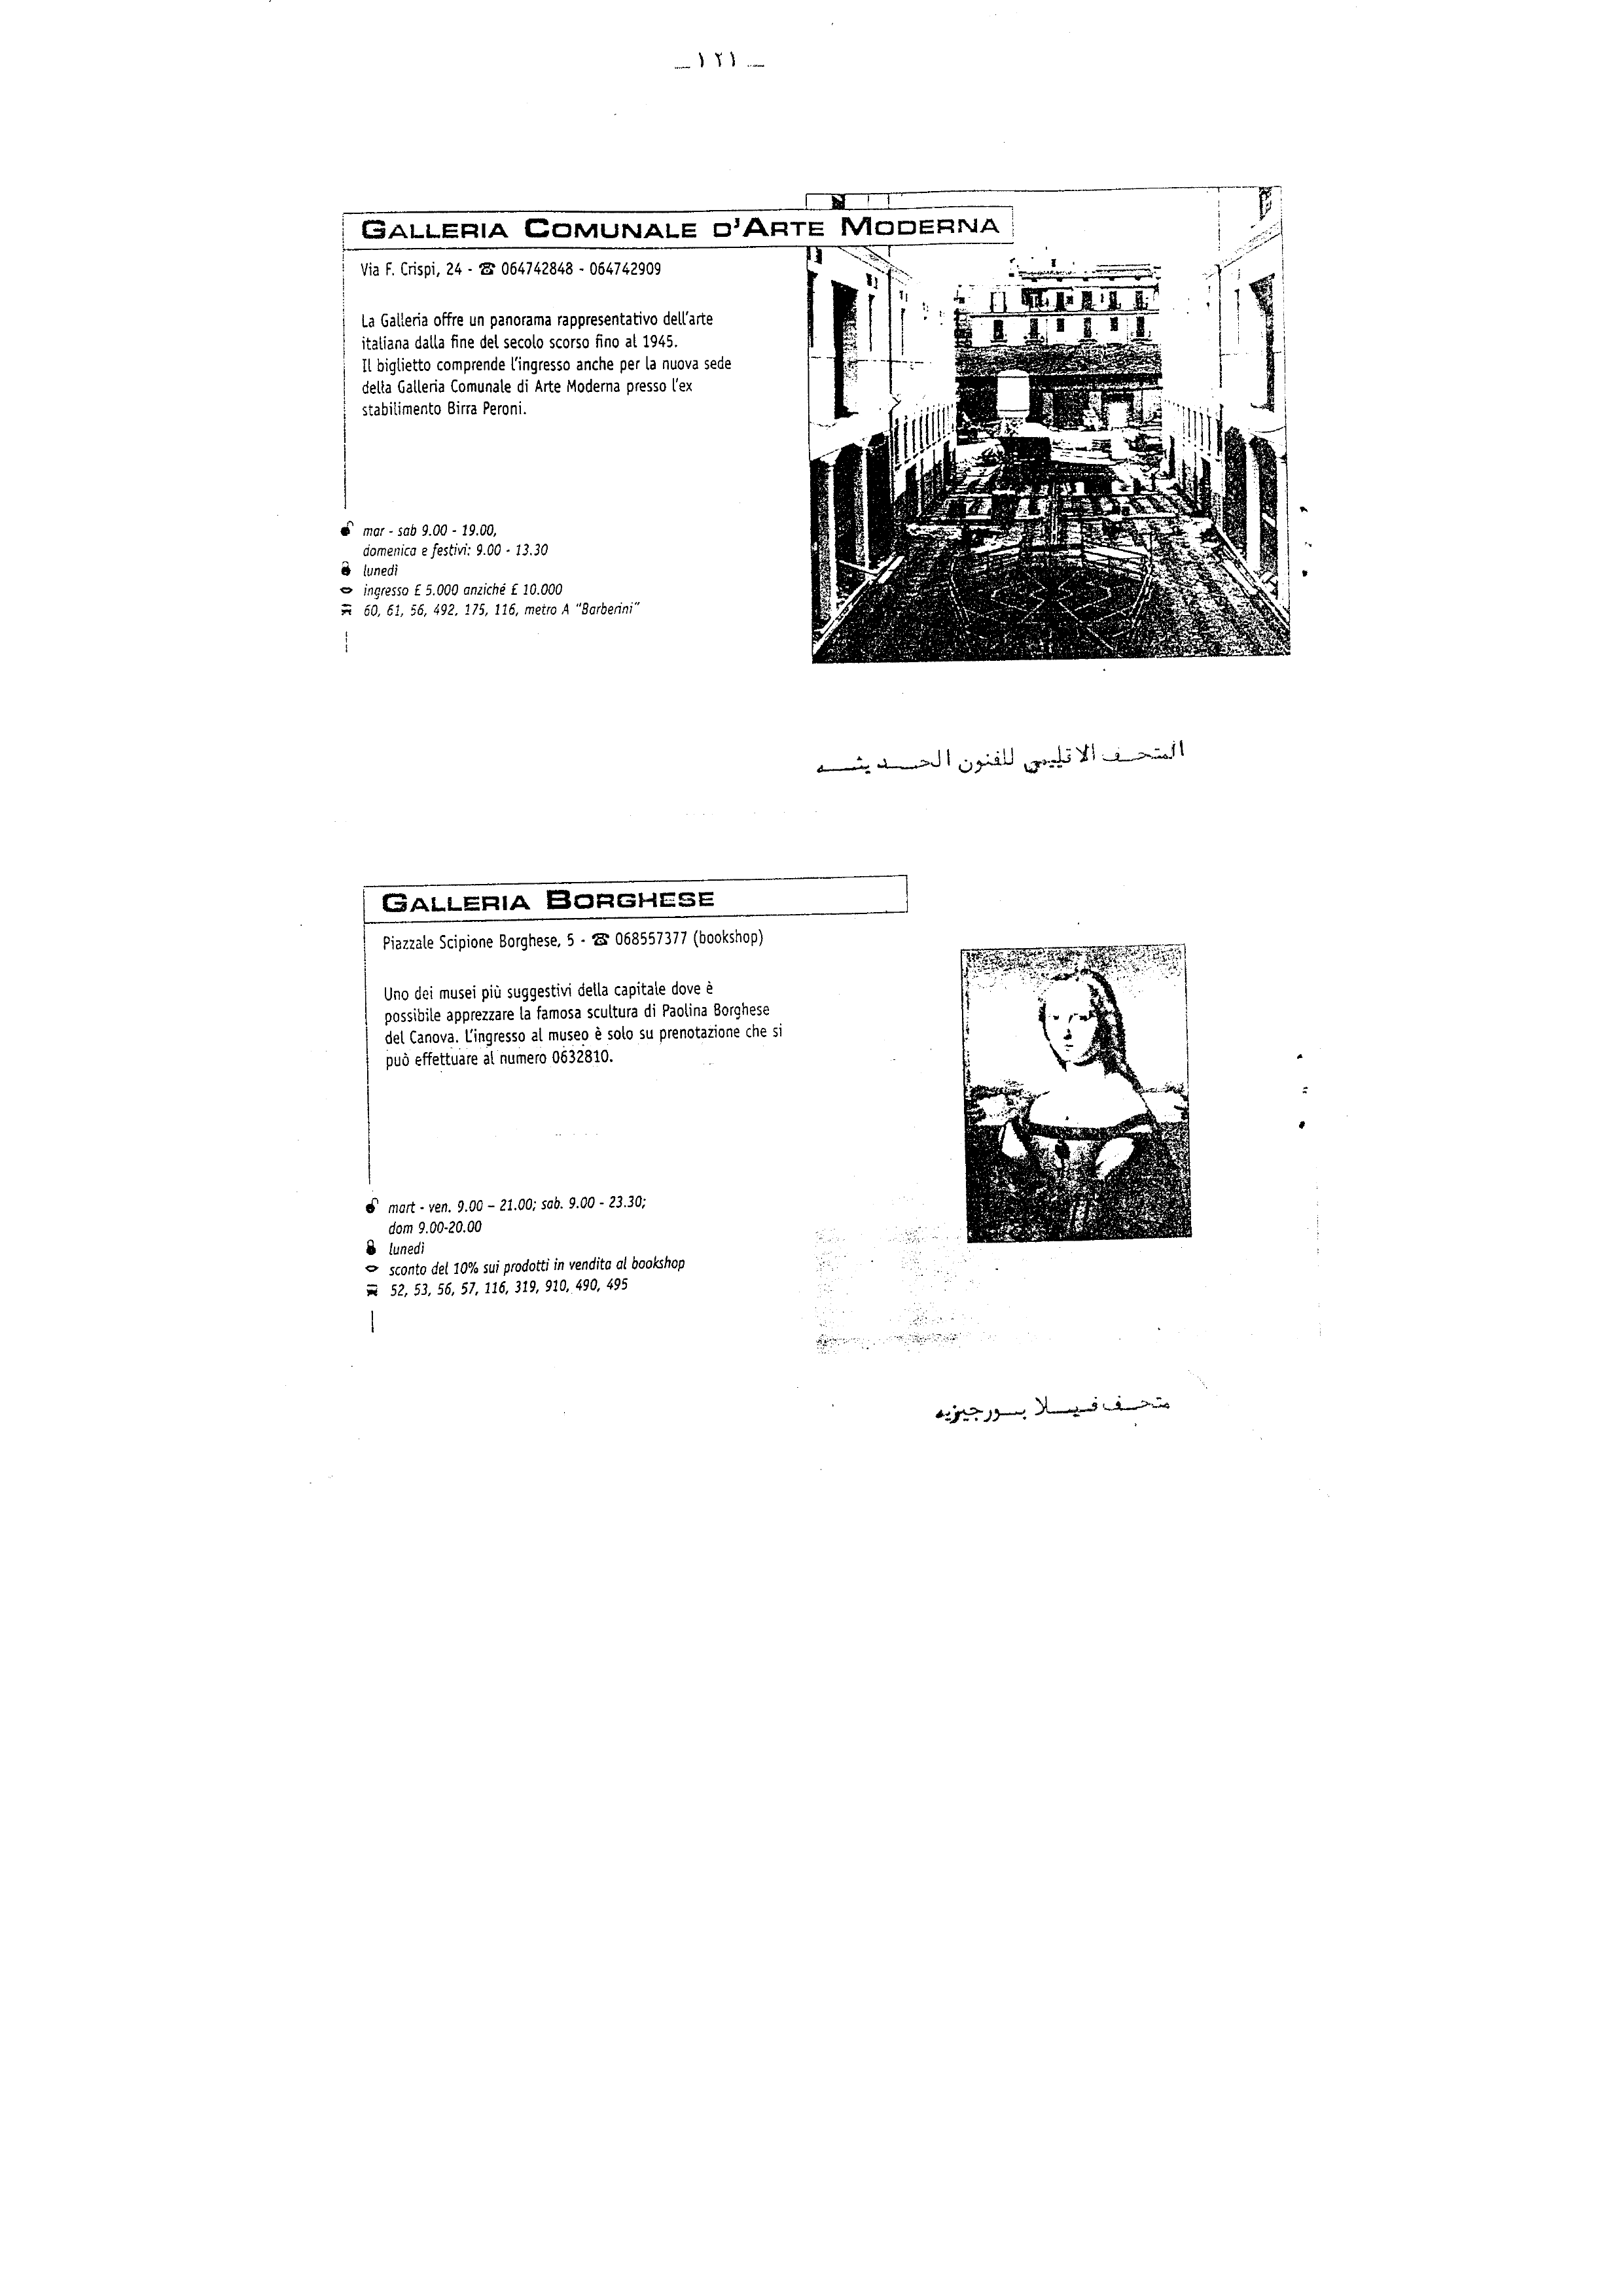 _ ١٢١ _
GALLERIA COMUNALE D'ARTE MODERNA
Via F. Crispi, 24 - ☎ 064742848 - 064742909
La Galleria offre un panorama rappresentativo dell'arte
italiana dalla fine del secolo scorso fino al 1945.
Il biglietto comprende l'ingresso anche per la nuova sede
della Galleria Comunale di Arte Moderna presso l'ex
stabilimento Birra Peroni.
mar - sab 9.00 - 19.00,
domenica e festivi: 9.00 - 13.30
lunedì
ingresso £ 5.000 anziché £ 10.000
60, 61, 56, 492, 175, 116, metro A "Barberini"
المتحف الاقليمي للفنون الحديثه
GALLERIA BORGHESE
Piazzale Scipione Borghese, 5 - ☎ 068557377 (bookshop)
Uno dei musei più suggestivi della capitale dove è
possibile apprezzare la famosa scultura di Paolina Borghese
del Canova. L'ingresso al museo è solo su prenotazione che si
può effettuare al numero 0632810.
mart - ven. 9.00 – 21.00; sab. 9.00 - 23.30;
dom 9.00-20.00
lunedì
sconto del 10% sui prodotti in vendita al bookshop
52, 53, 56, 57, 116, 319, 910, 490, 495
متحف فيلا بورجيزيه